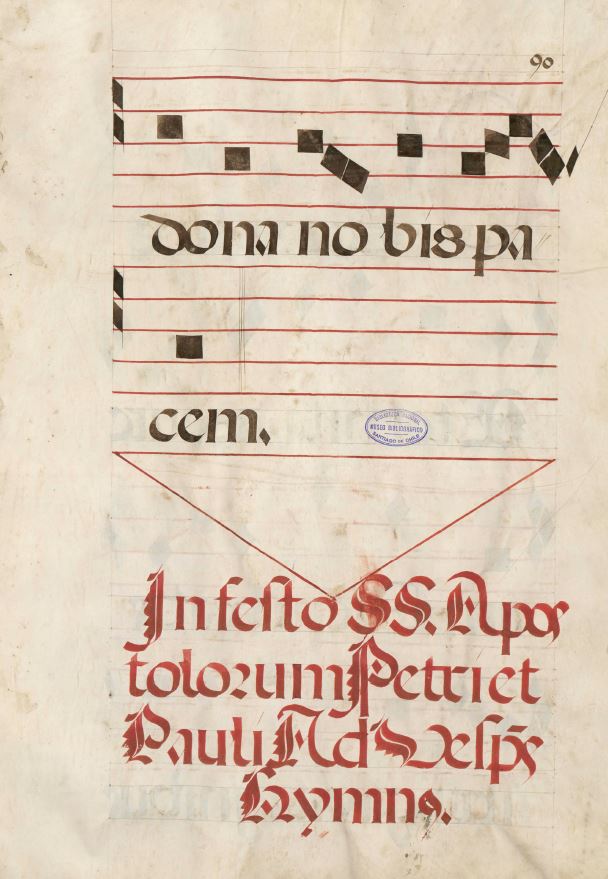 90
dona nobis pa
cem.
BIBLIOTECA NACIONAL
MUSEO BIBLIOGRAFICO
SANTIAGO DE CHILE
In festo SS. Apos
tolorum Petri et
Pauli Ad Vesp̄s
Hymns.